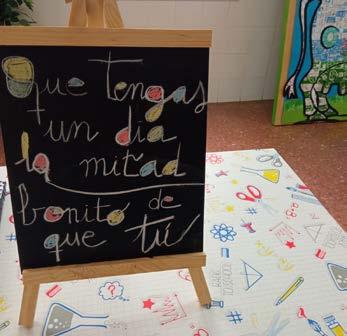 Que Tengas
un dia
la mitad
bonito de
que tú